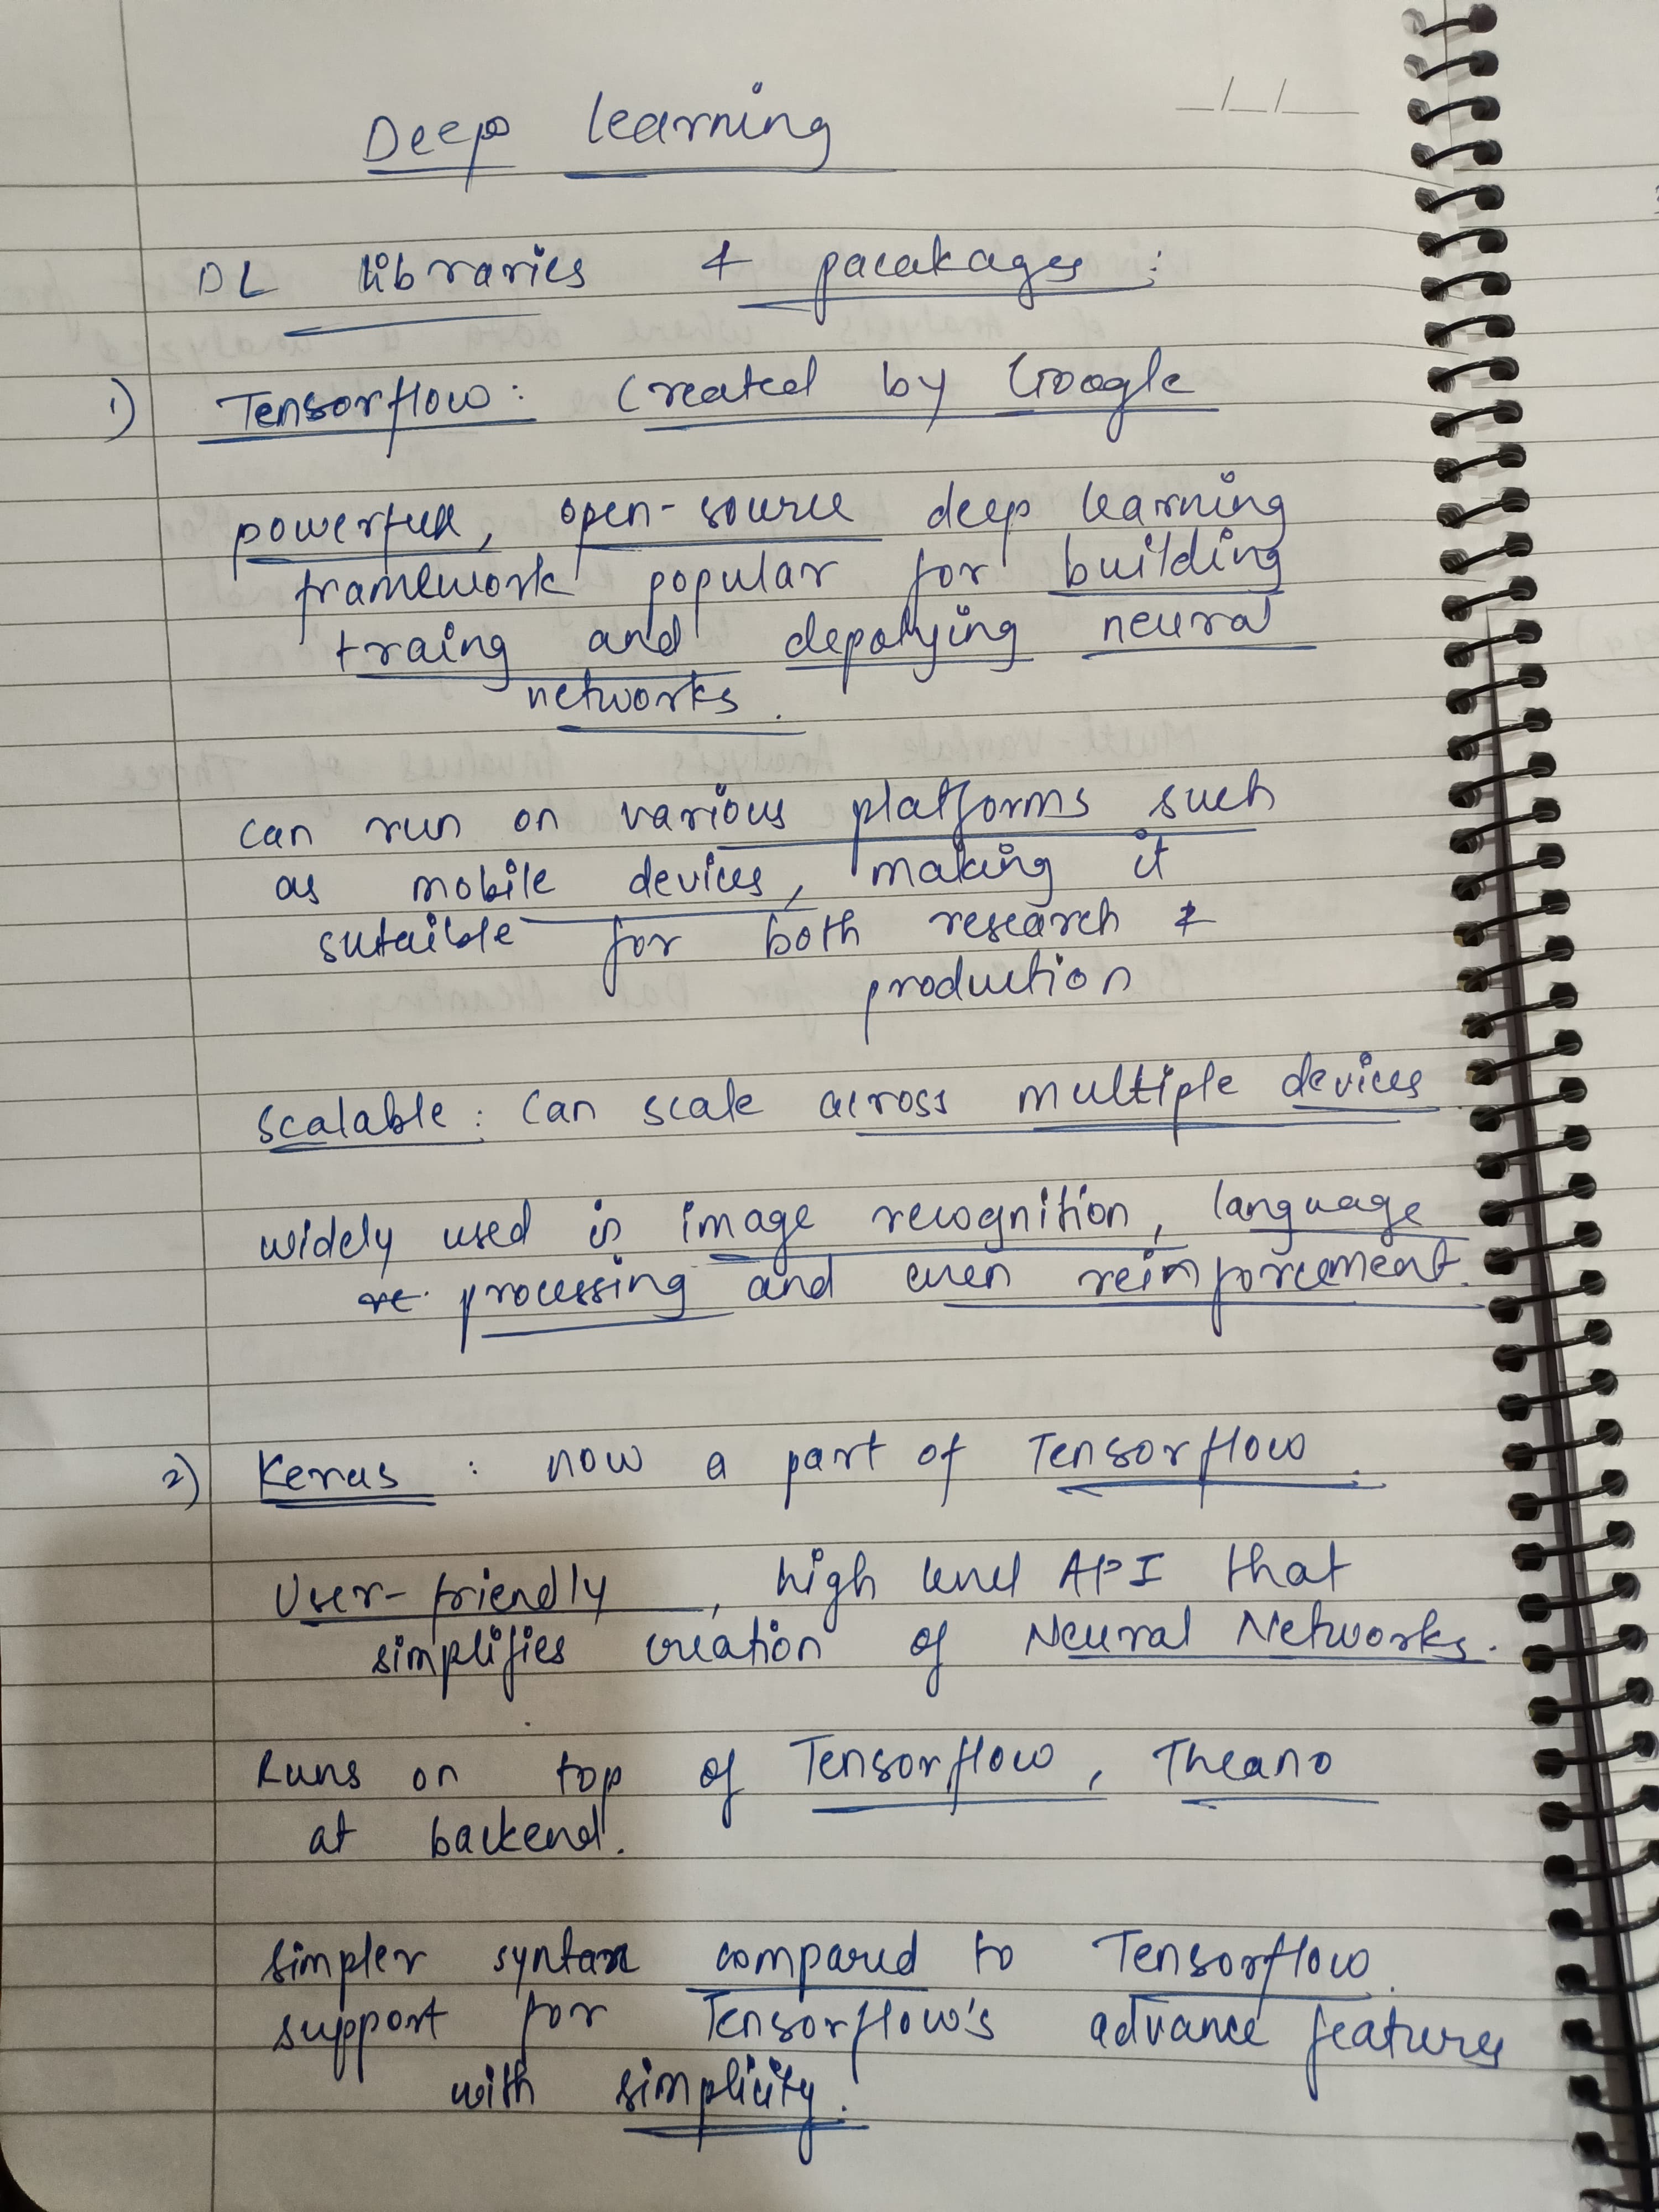 Deep learning
_/_/__
DL libraries & pacakages :
1) Tensorflow : Created by Google
powerful, open-source deep learning
framework popular for building
traing and depolying neural
networks.
can run on various platforms such
as mobile devices, making it
sutaible for both research &
production
scalable : Can scale across multiple devices
widely used in image recognition, language
re processing and even reinforcement.
2) Keras : now a part of Tensorflow.
User-friendly, high level API that
simplifies creation of Neural Networks.
Runs on top of Tensorflow, Theano
at backend.
Simpler syntax compared to Tensorflow.
support for Tensorflow's advance features
with simplicity.